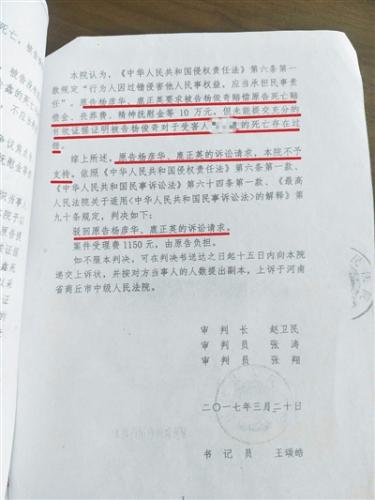 本院认为，《中华人民共和国侵权责任法》第六条第一
款规定“行为人因过错侵害他人民事权益，应当承担民事责
任”。原告杨彦华、鹿正英要求被告杨俊奇赔偿原告死亡赔
偿金、丧葬费、精神抚慰金等 10 万元，但未能提交充分的
有效证据证明被告杨俊奇对于受害人 的死亡存在过
错。
综上所述，原告杨彦华、鹿正英的诉讼请求，本院不予
支持。依照《中华人民共和国侵权责任法》第六条第一款、
《中华人民共和国民事诉讼法》第六十四条第一款、《最高
人民法院关于适用《中华人民共和国民事诉讼法》的解释》第
九十条规定，判决如下：
驳回原告杨彦华、鹿正英的诉讼请求。
案件受理费 1150 元，由原告负担。
如不服本判决，可在判决书送达之日起十五日内向本院
递交上诉状，并按对方当事人的人数提出副本，上诉于河南
省商丘市中级人民法院。
审 判 长 赵卫民
审 判 员 张 涛
审 判 员 张 翔
二〇一七年三月二十日
书 记 员 王颂皓